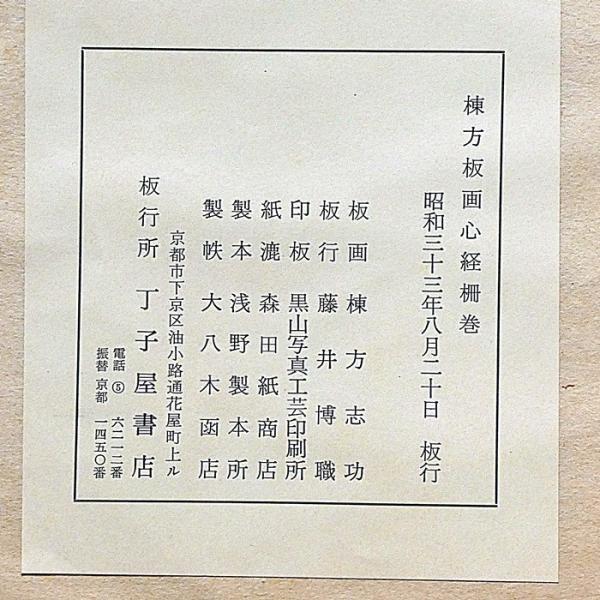 棟方板画心経柵巻
昭和三十三年八月二十日　板行
板画　棟方志功
板行　藤井博職
印板　黒山写真工芸印刷所
紙漉　森田紙商店
製本　浅野製本所
製帙　大八木函店
京都市下京区油小路通花屋町上ル
板行所　丁子屋書店
電話　⑤　六二一二番
振替　京都　一四五〇番